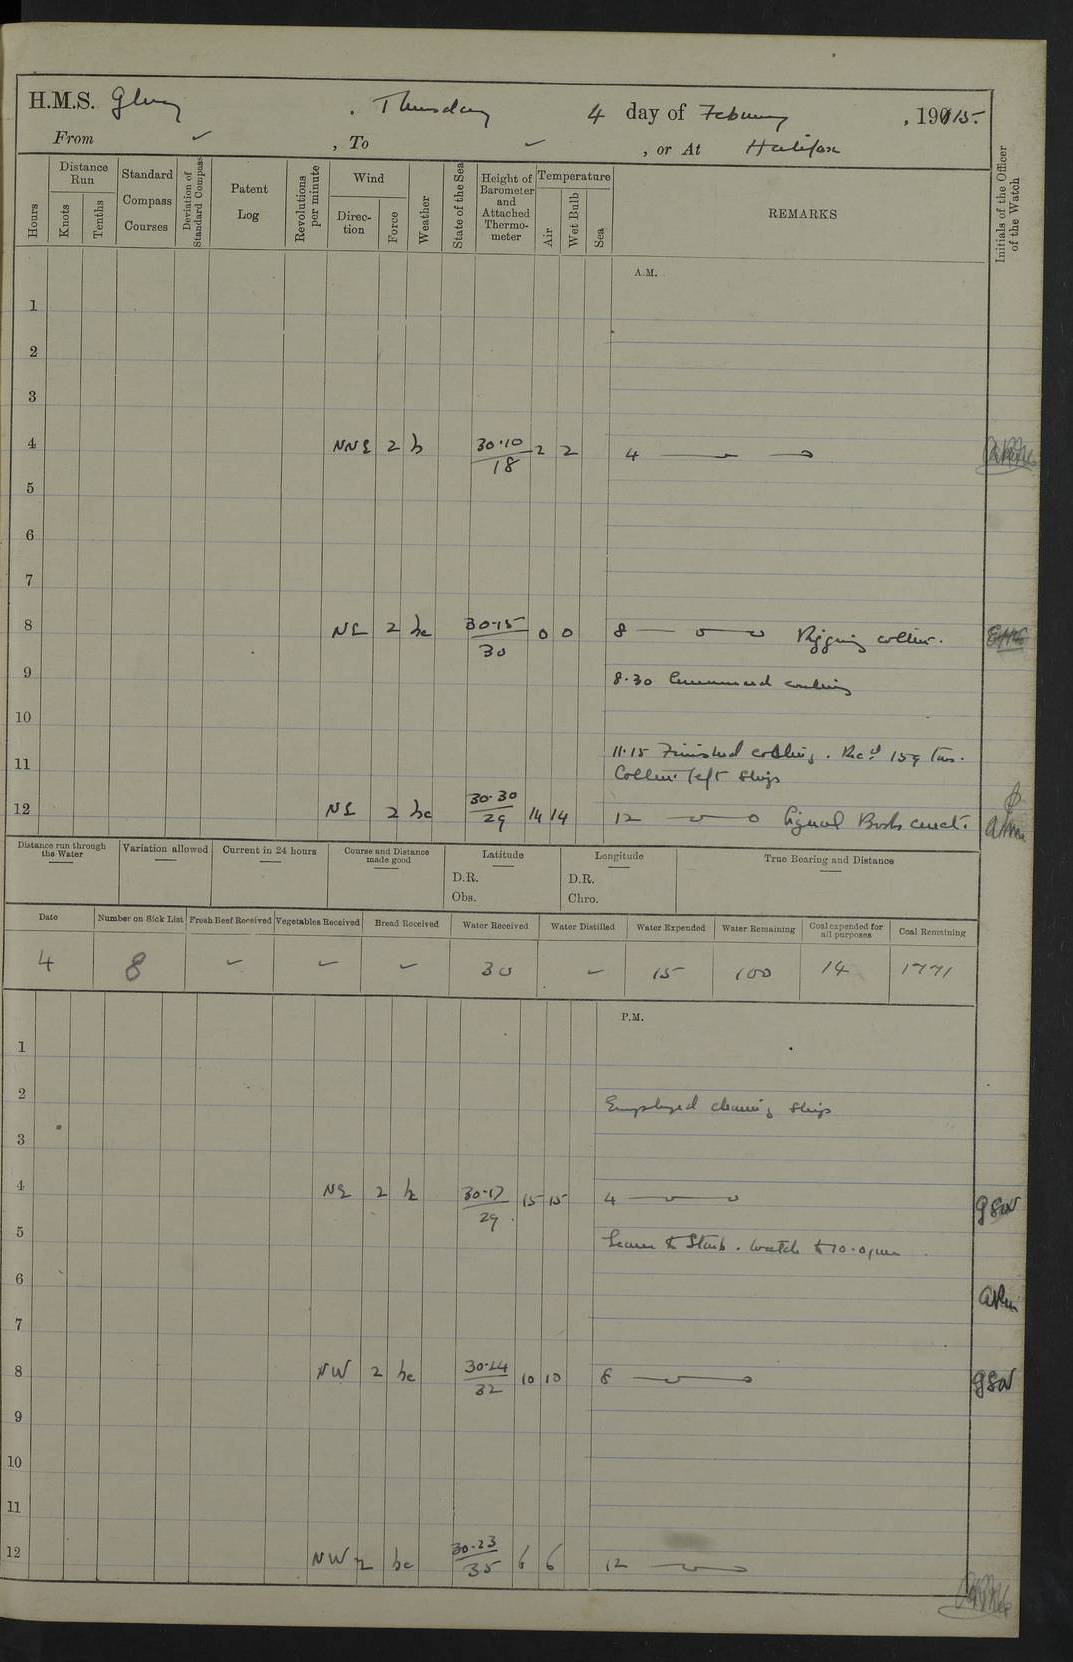 H.M.S. Glory , Thursday 4 day of February , 1915.
From ✓ , To ✓ , or At Halifax
Hours
Distance Run
Knots
Tenths
Standard Compass Courses
Deviation of Standard Compass
Patent Log
Revolutions per minute
Wind
Direc-tion
Force
Weather
State of the Sea
Height of Barometer and Attached Thermo-meter
Temperature
Air
Wet Bulb
Sea
REMARKS
Initials of the Officer of the Watch
A.M.
1
2
3
4 NNE 2 b 30·10 / 18 2 2 4
5
6
7
8 NE 2 bc 30·15 / 30 0 0 8 Rigging collier.
9 8·30 Commenced coaling
10
11·15 Finished coaling. Recd 159 tons.
11 Collier left ship
12 NE 2 bc 30·30 / 29 14 14 12 Signal Books correct.
Distance run through the Water
Variation allowed
Current in 24 hours
Course and Distance made good
Latitude
D.R.
Obs.
Longitude
D.R.
Chro.
True Bearing and Distance
Date Number on Sick List Fresh Beef Received Vegetables Received Bread Received Water Received Water Distilled Water Expended Water Remaining Coal expended for all purposes Coal Remaining
4 8 - - - 30 - 15 100 14 1771
P.M.
1
2 Employed cleaning ship
3
4 NE 2 bc 30·17 / 29 15 15 4 GSW
5 Leave to Starb. watch to 10·0 pm
6
7
8 NW 2 bc 30·24 / 32 10 10 8 GSW
9
10
11
12 NW 2 bc 30·23 / 35 6 6 12